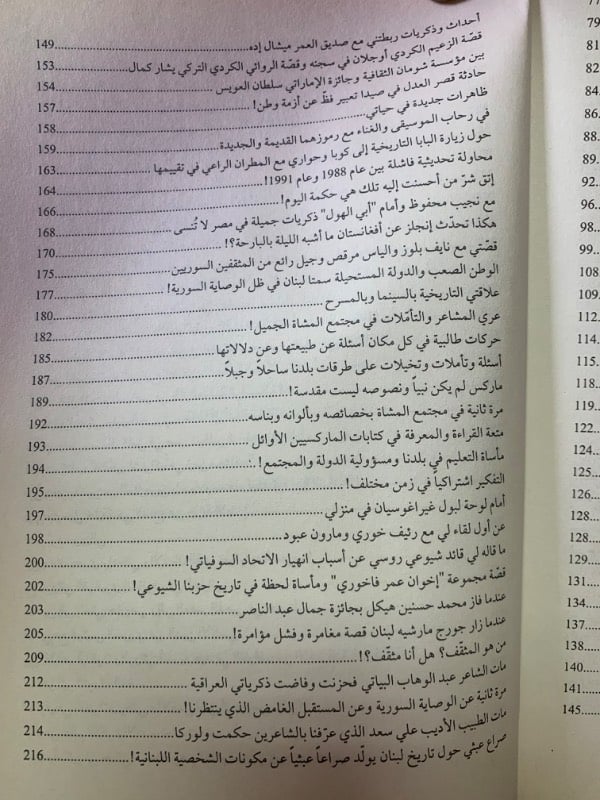 77
79
81
82
84
86
88
89
92
96
98
99
108
109
112
114
115
118
119
122
124
125
126
128
128
129
131
134
137
138
140
141
145
أحداث وذكريات ربطتني مع صديق العمر ميشال إده 149
قصة الزعيم الكردي أوجلان في سجنه وقصة الروائي الكردي التركي يشار كمال 153
بين مؤسسة شومان الثقافية وجائزة الإماراتي سلطان العويس 154
حادثة قصر العدل في صيدا تعبير فظّ عن أزمة وطن! 157
ظاهرات جديدة في حياتي 158
في رحاب الموسيقى والغناء مع رموزهما القديمة والجديدة 159
حول زيارة البابا التاريخية إلى كوبا وحواري مع المطران الراعي في تقييمها 163
محاولة تحديثية فاشلة بين عام 1988 وعام 1991! 164
إتق شرّ من أحسنت إليه تلك هي حكمة اليوم! 166
مع نجيب محفوظ وأمام "أبي الهول" ذكريات جميلة في مصر لا تُنسى 168
هكذا تحدّث إنجلز عن أفغانستان ما أشبه الليلة بالبارحة؟! 170
قصّتي مع نايف بلوز والياس مرقص وجيل رائع من المثقفين السوريين 175
الوطن الصعب والدولة المستحيلة سمتا لبنان في ظل الوصاية السورية! 177
علاقتي التاريخية بالسينما وبالمسرح 180
عري المشاعر والتأمّلات في مجتمع المشاة الجميل! 182
حركات طالبية في كل مكان أسئلة عن طبيعتها وعن دلالاتها 185
أسئلة وتأملات وتخيلات على طرقات بلدنا ساحلاً وجبلاً 187
ماركس لم يكن نبياً ونصوصه ليست مقدسة! 189
مرة ثانية في مجتمع المشاة بخصائصه وبألوانه وبناسه 192
متعة القراءة والمعرفة في كتابات الماركسيين الأوائل 193
مأساة التعليم في بلدنا ومسؤولية الدولة والمجتمع! 194
التفكير اشتراكياً في زمن مختلف! 195
أمام لوحة لبول غيراغوسيان في منزلي 197
عن أول لقاء لي مع رئيف خوري ومارون عبود 198
ما قاله لي قائد شيوعي روسي عن أسباب انهيار الاتحاد السوفياتي! 200
قصّة مجموعة "إخوان عمر فاخوري" ومأساة لحظة في تاريخ حزبنا الشيوعي! 202
عندما فاز محمد حسنين هيكل بجائزة جمال عبد الناصر 203
عندما زار جورج مارشيه لبنان قصة مغامرة وفشل مؤامرة! 205
من هو المثقّف؟ هل أنا مثقّف؟! 209
مات الشاعر عبد الوهاب البياتي فحزنت وفاضت ذكرياتي العراقية 212
مرة ثانية عن الوصاية السورية وعن المستقبل الغامض الذي ينتظرنا! 213
مات الطبيب الأديب علي سعد الذي عرّفنا بالشاعرين حكمت ولوركا 214
صراع عبثي حول تاريخ لبنان يولّد صراعاً عبثياً عن مكونات الشخصية اللبنانية! 216